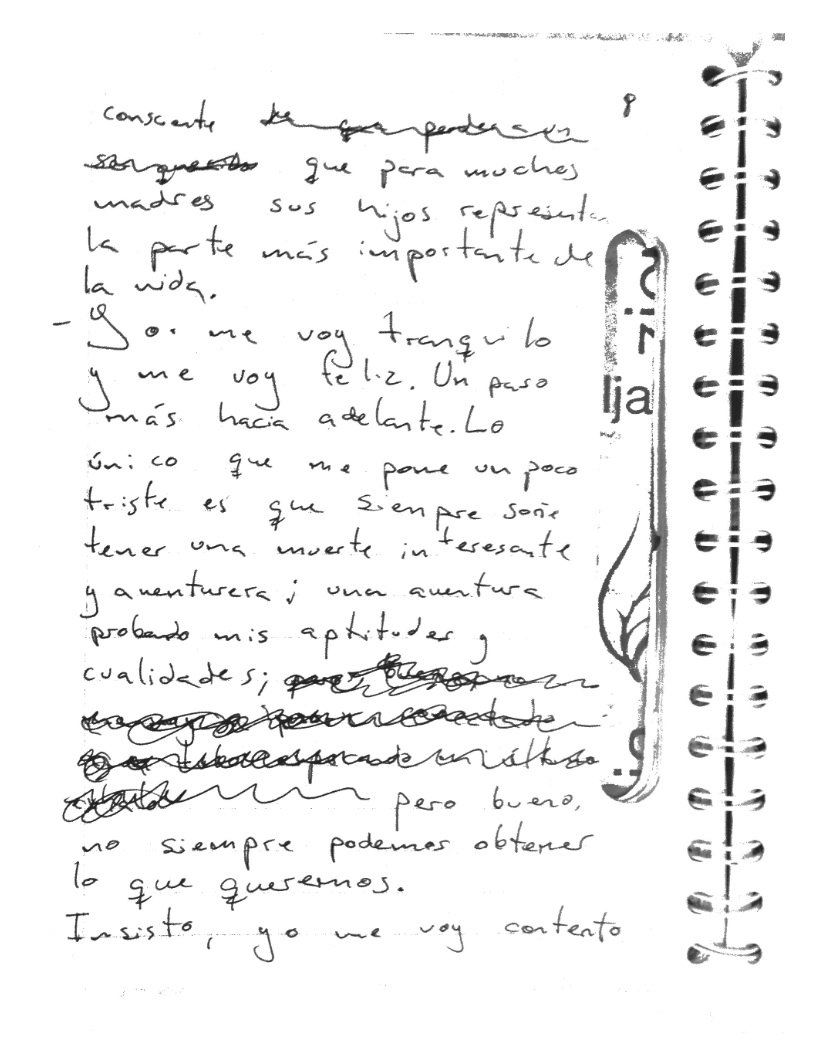 consciente de que perder a un
ser querido que para muchas
madres sus hijos representan
la parte más importante de
la vida.
- Yo. me voy tranquilo
y me voy feliz. Un paso
más hacia adelante. Lo
único que me pone un poco
triste es que siempre soñe
tener una muerte interesante
y aventurera; una aventura
probando mis aptitudes y
cualidades;
pero bueno,
no siempre podemos obtener
lo que queremos.
Insisto, yo me voy contento
lja